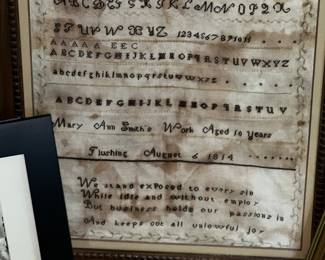 ABCDEFGHIJKLMNOPQR
STUVWXYZ 1234567891011
AAAAA EEC
ABCDEFGHIJKLMNOPQRSTUVWXYZ
abcdefghijklmnopqrstuvwxyz
ABCDEFGHIJKLMNOPQRSTUV
Mary Ann Smith's Work Aged 10 years
Flushing August 6 1814
We stand exposed to every sin
While idle and without employ
But business holds our passions in
And keeps out all unlawful joy